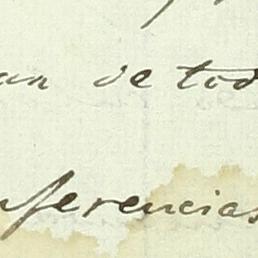 an de tod
nferencias